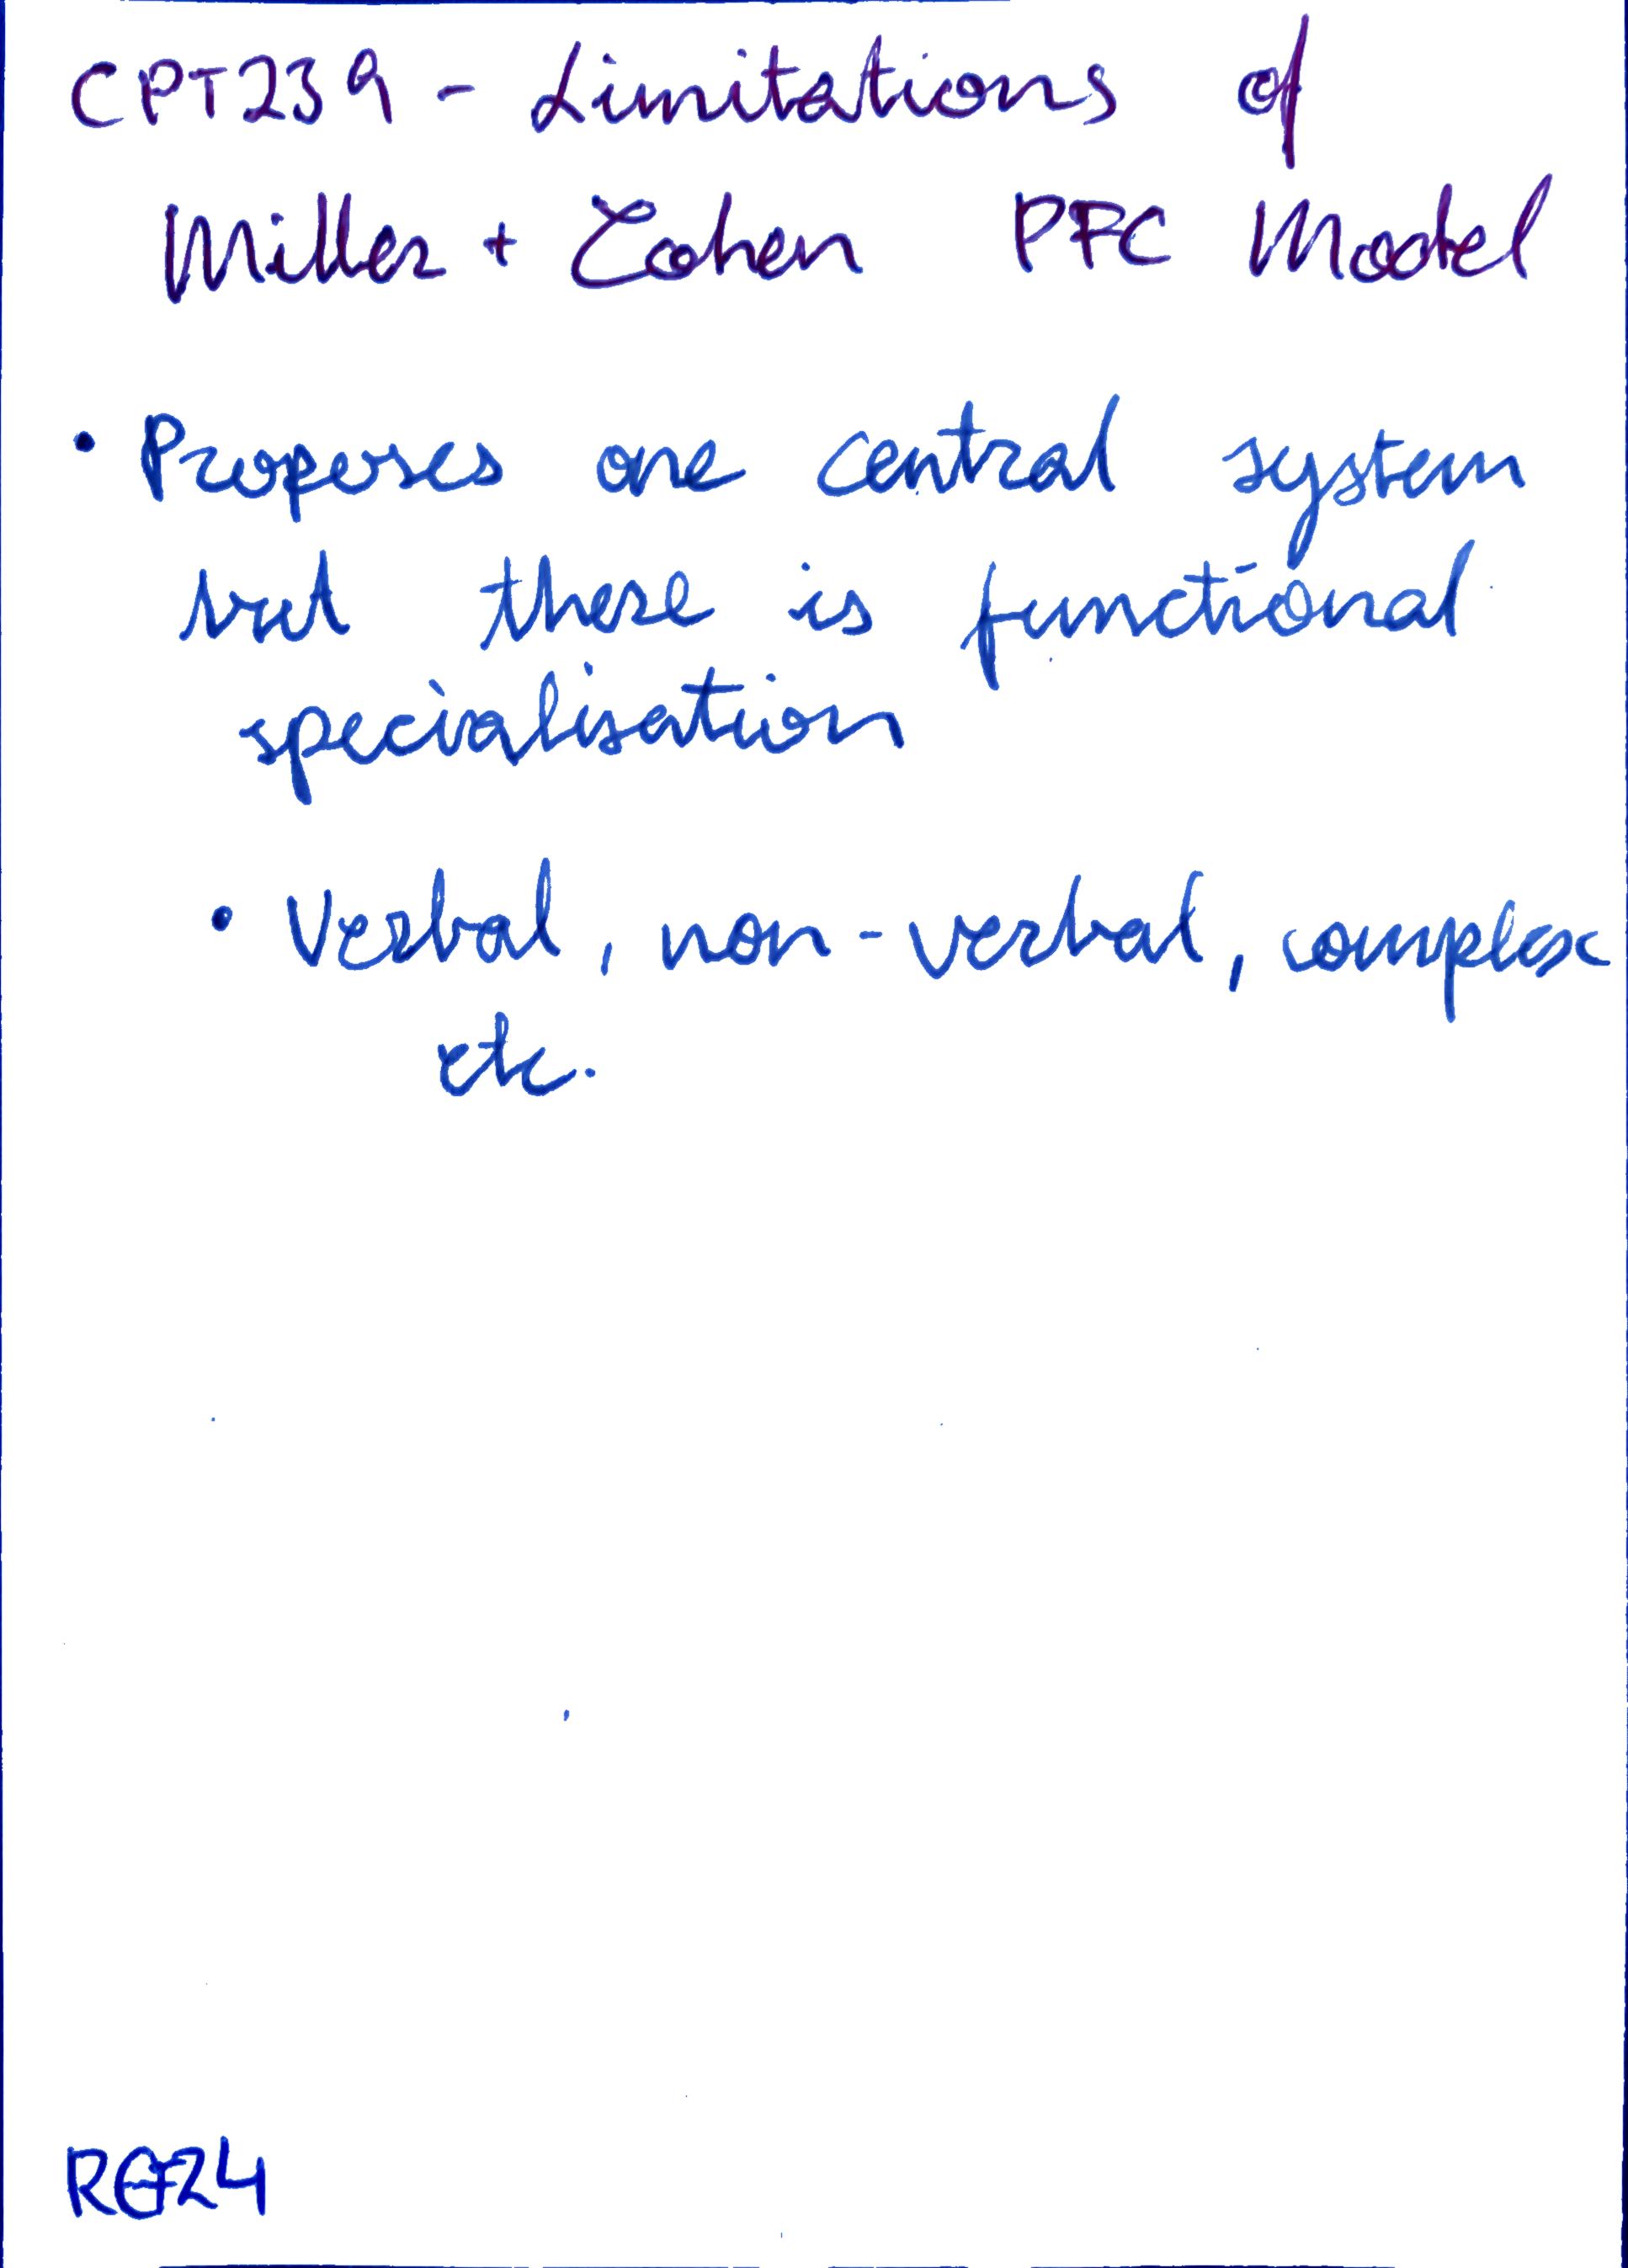 CPT239 - Limitations of
Miller + Cohen PFC Model
• Proposes one central system
but there is functional
specialisation
• Verbal, non-verbal, complex
etc.